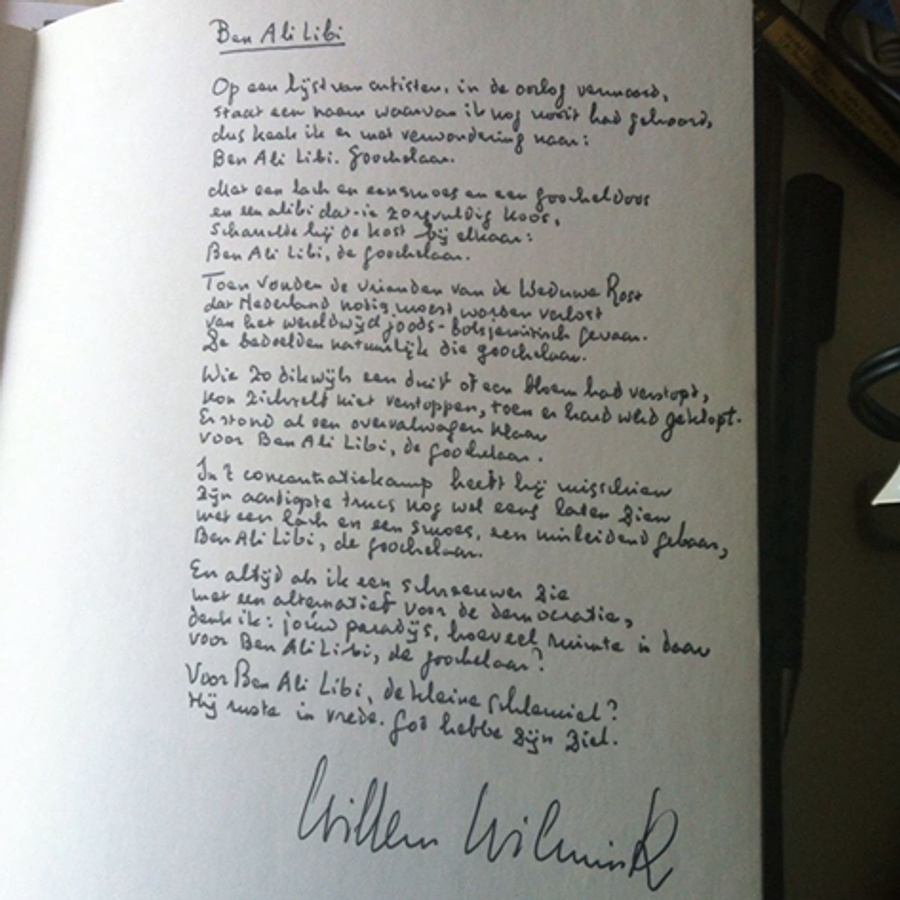 Ben Ali Libi
Op een lijst van artisten, in de oorlog vermoord,
staat een naam waarvan ik nog nooit had gehoord,
dus keek ik er met verwondering naar:
Ben Ali Libi. Goochelaar.
Met een lach en een smoes en een goocheldoos
en een alibi dat-ie zorgvuldig koos,
scharrelde hij de kost bij elkaar:
Ben Ali Libi, de goochelaar.
Toen vonden de vrienden van de Weduwe Rost
dat Nederland nodig moest worden verlost
van het wereldwijd joods-bolsjewistisch gevaar.
Ze bedoelden natuurlijk die goochelaar.
Wie zo dikwijls een duif of een bloem had verstopt,
kon zichzelf niet verstoppen, toen er hard werd geklopt.
Er stond al een overvalwagen klaar
voor Ben Ali Libi, de goochelaar.
In 't concentratiekamp heeft hij misschien
zijn aardigste trucs nog wel eens laten zien
met een lach en een smoes, een misleidend gebaar,
Ben Ali Libi, de goochelaar.
En altijd als ik een schreeuwer zie
met een alternatief voor de democratie,
denk ik: jouw paradijs, hoeveel ruimte is daar
voor Ben Ali Libi, de goochelaar?
Voor Ben Ali Libi, de kleine schlemiel?
Hij ruste in vrede. God hebbe zijn ziel.
Willem Wilmink